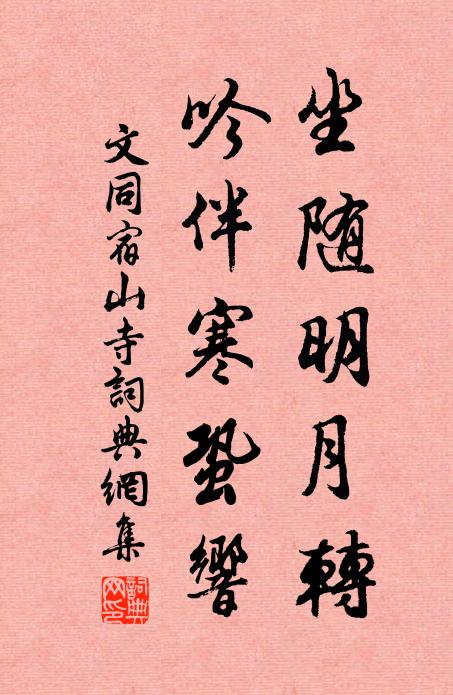 坐随明月轉
吟伴寒蛩響
文同宿山寺詞典網集
詞典網印